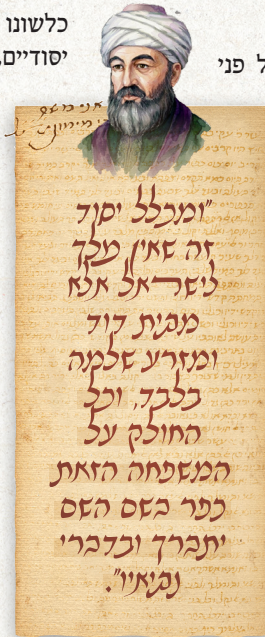 כלשונו
יסודיים,
ל פני
"ומכלל יסוד
זה שאין מלך
לישראל אלא
מבית דוד
ומזרע שלמה
בלבד, וכל
החולק על
המשפחה הזאת
כפר בשם השם
יתברך ובדברי
נביאיו".